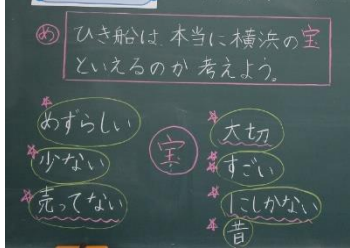 め ひき船は、本当に横浜の宝
といえるのか 考えよう。
めずらしい
少ない
売ってない
宝
大切
すごい
にしかない
昔